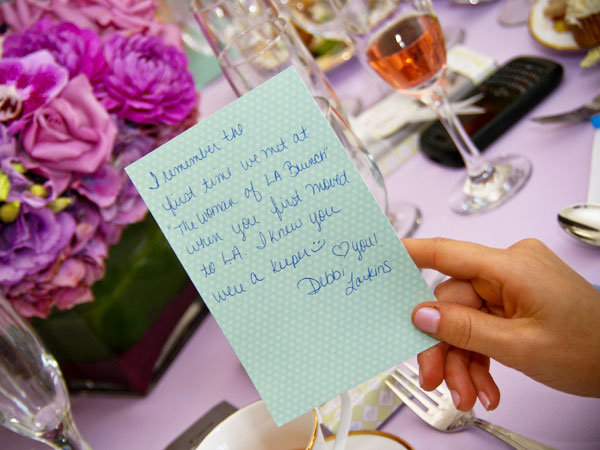 I remember the
first time we met at
"The Women of LA Brunch"
when you first moved
to LA. I knew you
were a keeper ☺
♡ you!
Debbi
Larkins